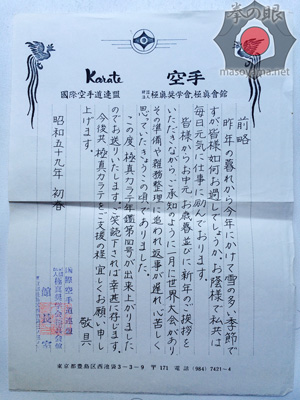 拳の眼
masutatsuoyama.net
Karate 空手
國際空手道連盟 極真奨学會、極真會館
前略
昨年の暮れから今年にかけて雪の多い季節で
すが皆様如何お過しでしょうか。お陰様で私共は
毎日元気に仕事に励んでおります。
皆様からお中元お歳暮並びに新年のご挨拶を
いただきながら、ご承知のように一月に世界大会があり
その準備や雑務整理に追われ返事が遅れ心苦しく
思っていたきょうこの頃でありました。
この度、極真カラテ年鑑第四号が出来上がりました
のでお送りいたします。ご笑読下されば幸甚に存じます。
今後共、極真カラテをご支援の程宜しくお願い申し
上げます。
敬具
昭和五十九年 初春
國際空手道連盟
極真奨学会極真会館
館長室
東京都豊島区西池袋3-3-9 〒171 電話 (984) 7421~4